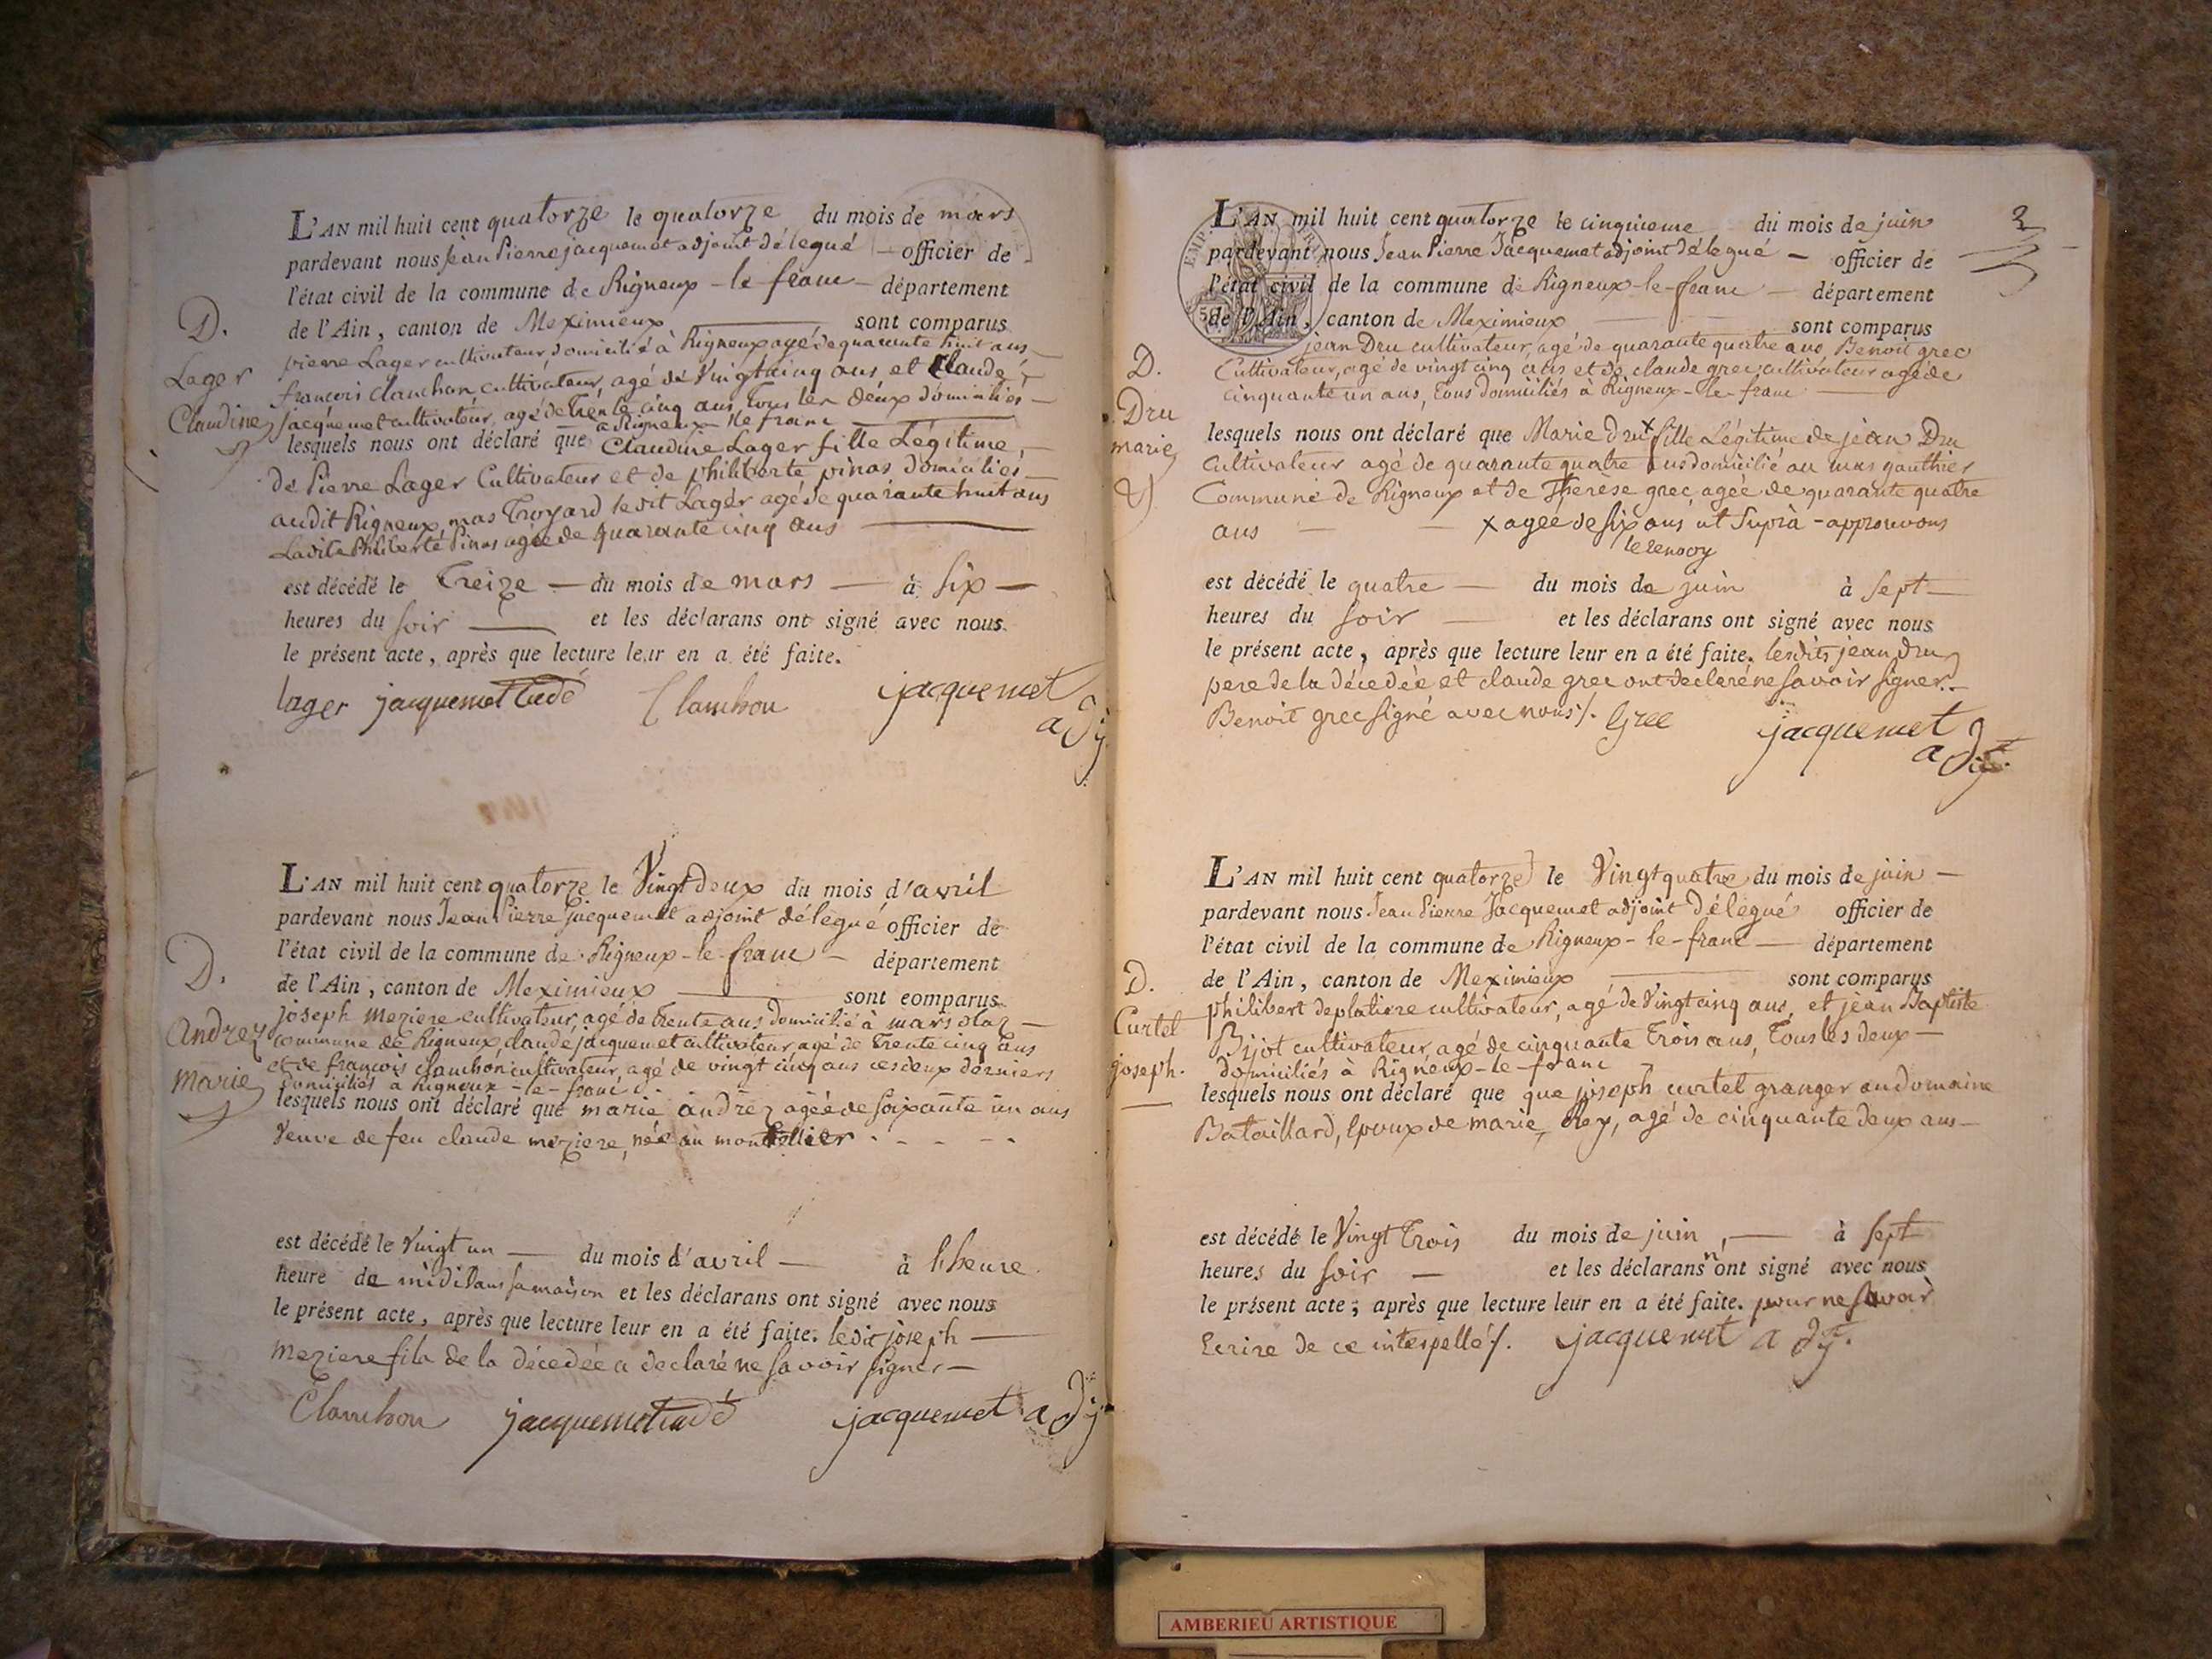 L'AN mil huit cent quatorze le quatorze du mois de mars
pardevant nous jean Pierre jacquemet adjoint délegué officier de
l'état civil de la commune de Rigneux - le franc département
de l'Ain, canton de Meximieux sont comparus
pierre Lager cultivateur domicilié à Rigneux agé de quarante huit ans
françois Clanchon, cultivateur, agé de Vingt cinq ans et Claude
jacquemet cultivateur, agé de Trente cinq ans, tous les deux domiciliés
a Rigneux le franc
lesquels nous ont déclaré que Claudine Lager fille Légitime,
de Pierre Lager Cultivateur et de philiberte pinas domiciliés
audit Rigneux, mas Troyard ledit Lager agé de quarante huit ans
Ladite Philiberte Pinas agée de quarante cinq ans
est décédé le Treize du mois de mars à six
heures du soir et les déclarans ont signé avec nous
le présent acte, après que lecture leur en a été faite.
lager jacquemet Claude Clanchon jacquemet
adj.
D.
Lager
Claudine
L'AN mil huit cent quatorze le Vingt deux du mois d'avril
pardevant nous Jean Pierre jacquemet adjoint délegué officier de
l'état civil de la commune de Rigneux - le franc département
de l'Ain, canton de Meximieux sont comparus
joseph meziere cultivateur, agé de trente ans domicilié à
commune de Rigneux, claude jacquemet cultivateur, agé de Trente cinq ans
et de françois clanchon cultivateur, agé de vingt cinq ans ces deux derniers
domiciliés a Rigneux - le - franc
lesquels nous ont déclaré que marie andrez agée de soixante un ans
Veuve de feu claude meziere, née au montellier
est décédé le Vingt un du mois d'avril à l'heure
heure de midi dans sa maison et les déclarans ont signé avec nous
le présent acte, après que lecture leur en a été faite. ledit joseph
meziere fils de la décedée a declaré ne savoir signer
Clanchon jacquemet jacquemet adj
D.
andrez
marie
3
L'AN mil huit cent quatorze le cinquieme du mois de juin
pardevant nous Jean Pierre Jacquemet adjoint délegué officier de
l'état civil de la commune de Rigneux - le - franc département
de l'Ain, canton de Meximieux sont comparus
jean Dru cultivateur, agé de quarante quatre ans Benoit grec
Cultivateur, agé de vingt cinq ans et de claude grec cultivateur agé de
cinquante un ans, tous domiciliés à Rigneux - le - franc
lesquels nous ont déclaré que Marie Dru x fille Légitime de jean Dru
Cultivateur agé de quarante quatre ans domicilié au mas gauthier
Commune de Rigneux et de Therèse grec, agée de quarante quatre
ans x agée de six ans ut Suprà - approuvons
le renvoy
est décédé le quatre du mois de juin à sept
heures du soir et les déclarans ont signé avec nous
le présent acte, après que lecture leur en a été faite. lesdits jean Dru
pere de la décedée et claude grec ont declaré ne savoir signer.
Benoit grec signé avec nous/. Grec jacquemet
adj.
D.
Dru
marie
L'AN mil huit cent quatorze le Vingt quatre du mois de juin
pardevant nous Jean Pierre Jacquemet adjoint Délegué officier de
l'état civil de la commune de Rigneux - le - franc département
de l'Ain, canton de Meximieux sont comparus
philibert deplatiere cultivateur, agé de Vingt cinq ans, et jean Baptiste
Bijot cultivateur, agé de cinquante Trois ans, Tous les deux
domiciliés à Rigneux - le - franc
lesquels nous ont déclaré que que joseph curtel granger au domaine
Bataillard, Epoux de marie Rey, agé de cinquante deux ans
est décédé le Vingt Trois du mois de juin, à sept
heures du soir et les déclarans n'ont signé avec nous
le présent acte, après que lecture leur en a été faite. pour ne savoir
Ecrire de ce interpellé/. jacquemet adj.
D.
Curtel
joseph.
AMBERIEU ARTISTIQUE